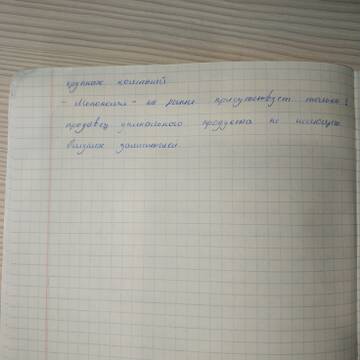 крупных компаний
- Монополия - на рынке присутствует только 1
продавец уникального продукта не имеющего
близких заменителей.